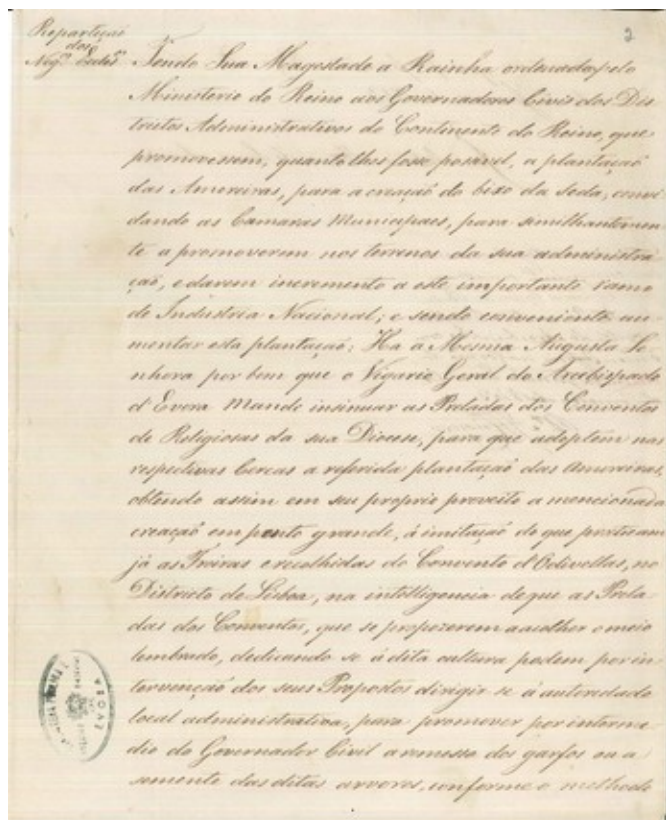 Repartição
dos
Neg.os Eccles.cos
2
Tendo Sua Magestade a Rainha ordenado pelo
Ministerio do Reino aos Governadores Civis dos Dis-
trictos Administrativos do Continente do Reino, que
promovessem, quanto lhes fosse possivel, a plantação
das Amoreiras, para a creação do bixo da seda, convi-
dando as Camaras Municipaes, para similhantemen-
te a promoverem nos terrenos da sua administra-
ção, e darem incremento a este importante ramo
de Industria Nacional; e sendo conveniente au-
mentar esta plantação: Ha a Mesma Augusta Se-
nhora por bem que o Vigario Geral do Arcebispado
d'Evora Mande insinuar as Preladas dos Conventos
de Religiosas da sua Diocese, para que adoptem nas
respectivas Cercas a referida plantação das Amoreiras,
obtendo assim em seu proprio proveito a mencionada
creação em ponto grande, á imitação do que praticam
já as Freiras e recolhidas do Convento d'Odivellas, no
Districto de Lisboa, na intelligencia de que as Prela-
das dos Conventos, que se propozerem a acolher o meio
lembrado, dedicando se á dita cultura podem por in-
tervenção dos seus Propostos dirigir se á autoridade
local administrativa, para promover por interme-
dio do Governador Civil a remessa dos garfos ou a
semente das ditas arvores, conforme o methodo
EVORA